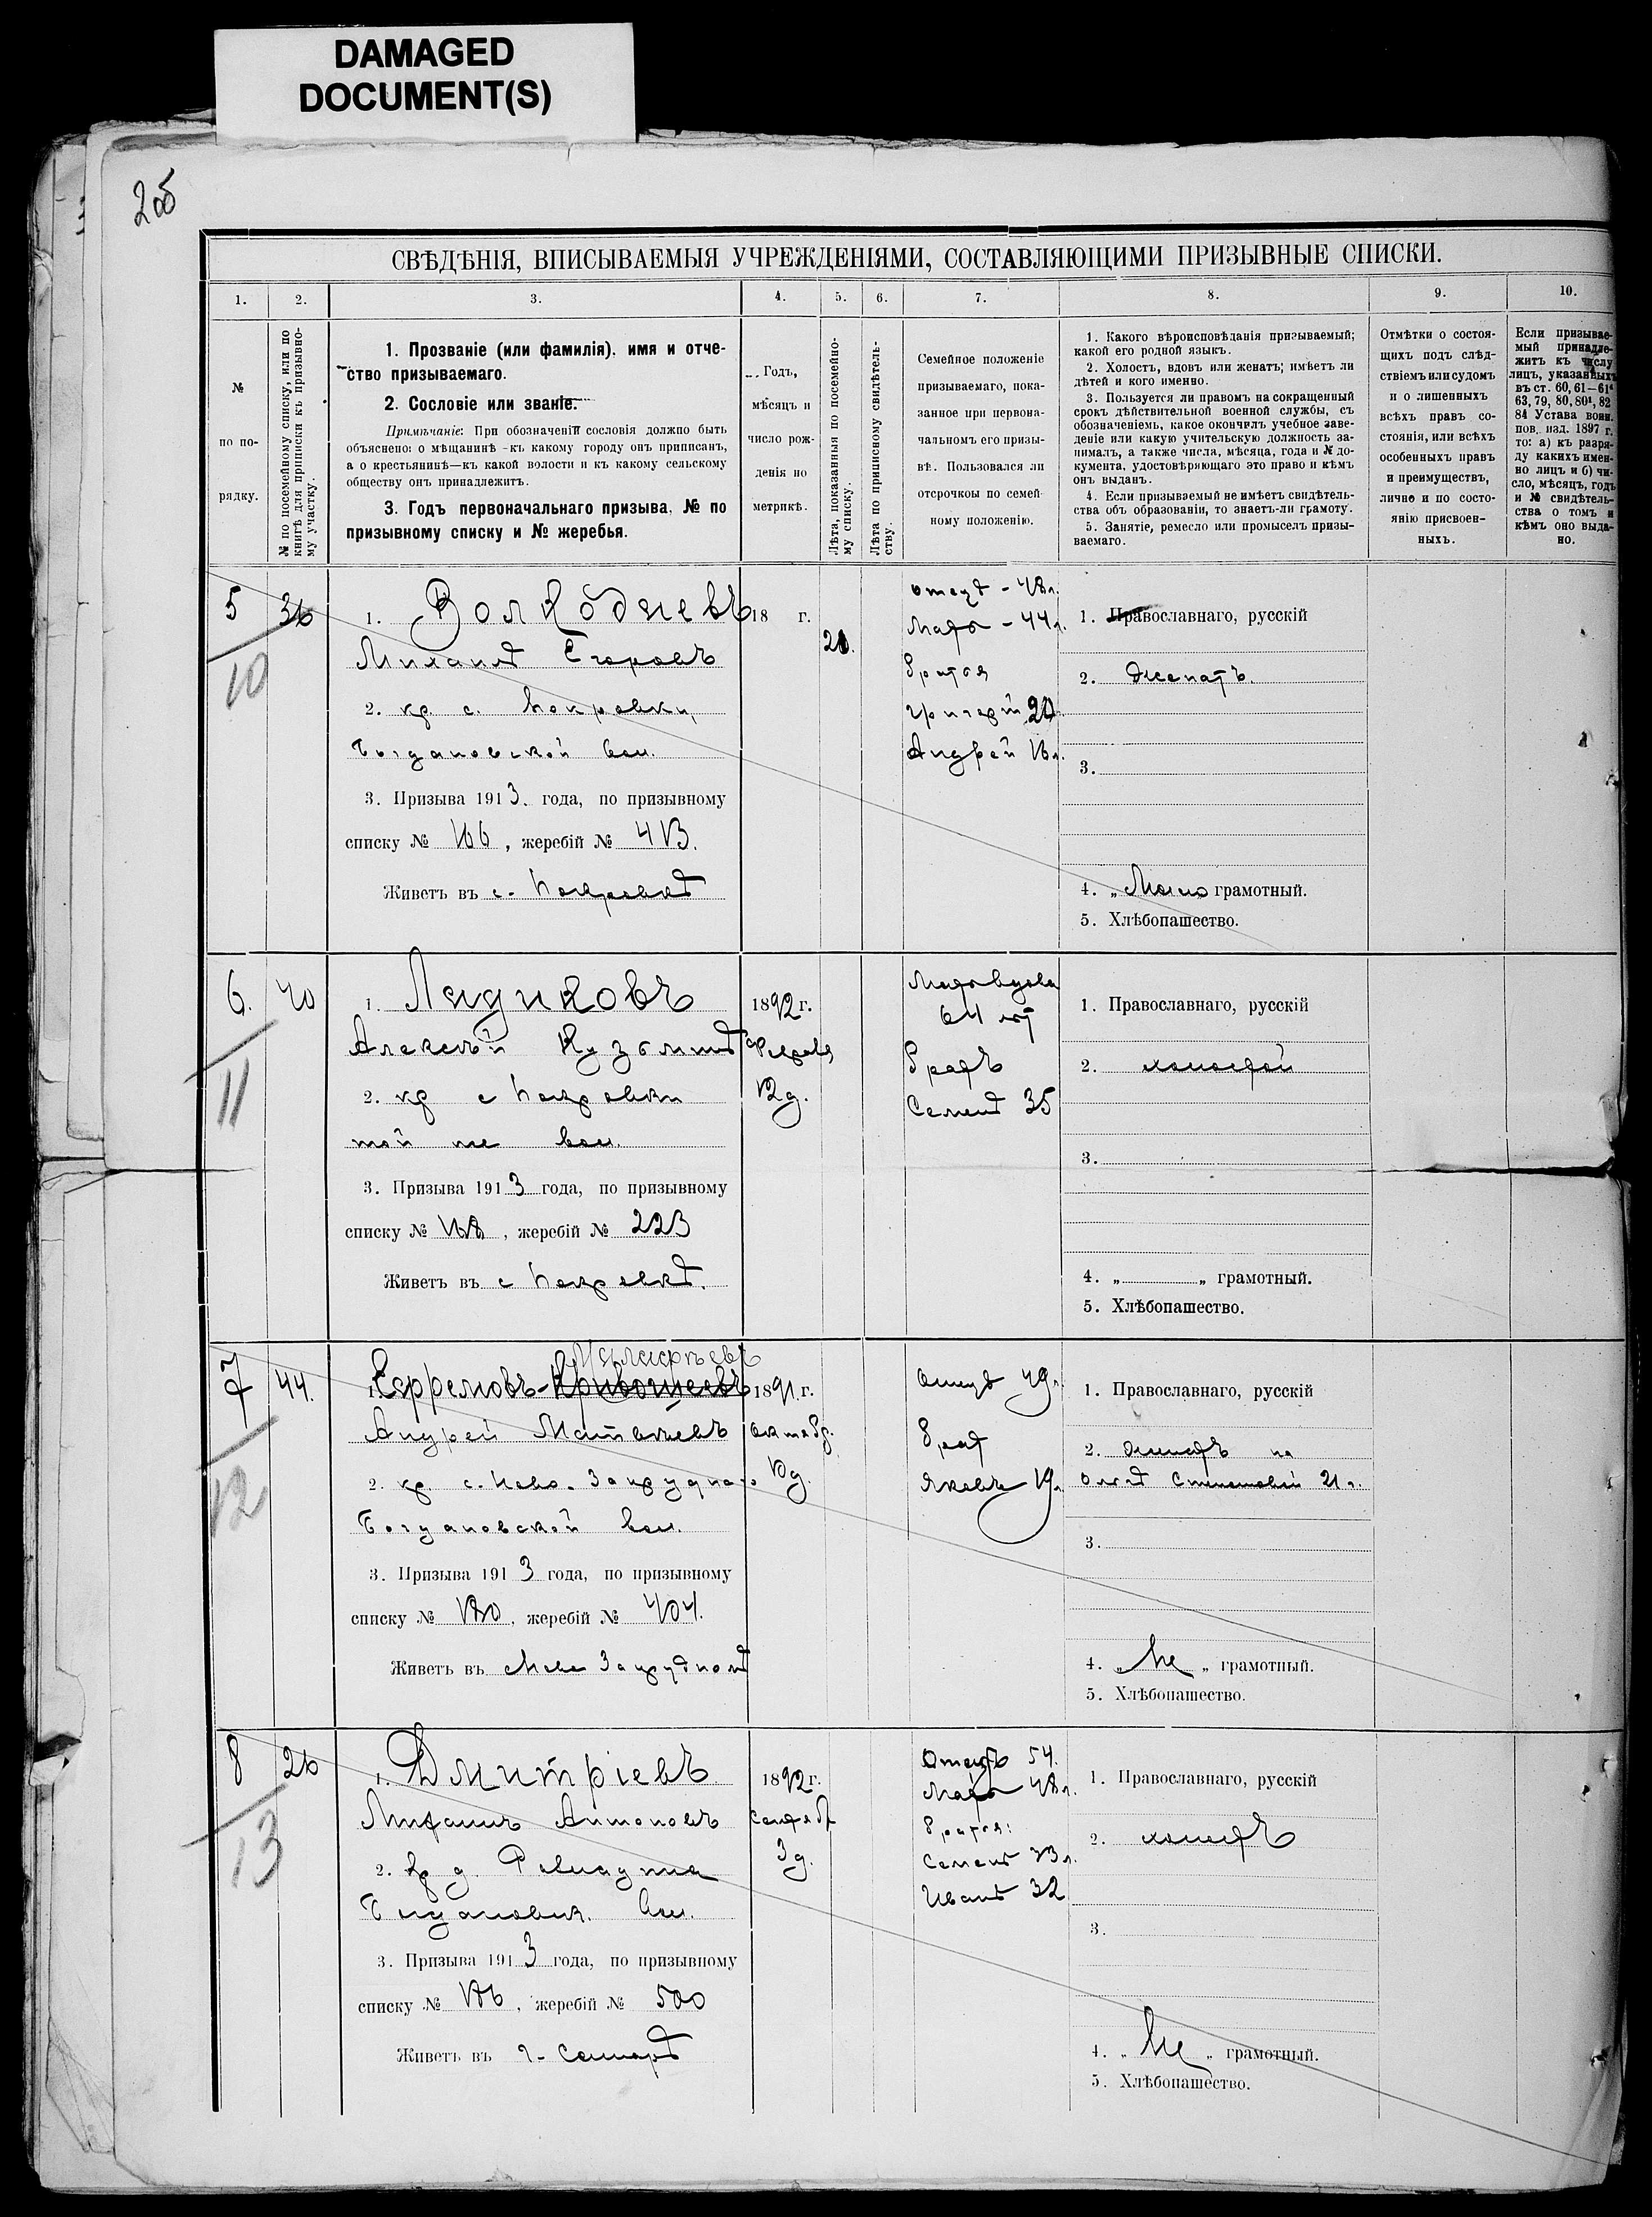 DAMAGED
DOCUMENT(S)
СВѢДѢНІЯ, ВПИСЫВАЕМЫЯ УЧРЕЖДЕНІЯМИ, СОСТАВЛЯЮЩИМИ ПРИЗЫВНЫЕ СПИСКИ.
1. 2. 3. 4. 5. 6. 7. 8. 9. 10.
№
по по-
рядку.
№ по посемейному списку, или по
книгѣ для приписки къ призывно-
му участку.
1. Прозваніе (или фамилія), имя и отче-
ство призываемаго.
2. Сословіе или званіе.
Примѣчаніе: При обозначеніи сословія должно быть
объяснено: о мѣщанинѣ -къ какому городу онъ приписанъ,
а о крестьянинѣ—къ какой волости и къ какому сельскому
обществу онъ принадлежитъ.
3. Годъ первоначальнаго призыва, № по
призывному списку и № жеребья.
Годъ,
мѣсяцъ и
число рож-
денія по
метрикѣ.
Лѣта, показанныя по посемейно-
му списку.
Лѣта по приписному свидѣтель-
ству.
Семейное положеніе
призываемаго, пока-
занное при первона-
чальномъ его призы-
вѣ. Пользовался ли
отсрочкою по семей-
ному положенію.
1. Какого вѣроисповѣданія призываемый;
какой его родной языкъ.
2. Холостъ, вдовъ или женатъ; имѣетъ ли
дѣтей и кого именно.
3. Пользуется ли правомъ на сокращенный
срокъ дѣйствительной военной службы, съ
обозначеніемъ, какое окончилъ учебное заве-
деніе или какую учительскую должность за-
нималъ, а также числа, мѣсяца, года и № до-
кумента, удостовѣряющаго это право и кѣмъ
онъ выданъ.
4. Если призываемый не имѣетъ свидѣтель-
ства объ образованіи, то знаетъ-ли грамоту.
5. Занятіе, ремесло или промыселъ призы-
ваемаго.
Отмѣтки о состоя-
щихъ подъ слѣд-
ствіемъ или судомъ
и о лишенныхъ
всѣхъ правъ со-
стоянія, или всѣхъ
особенныхъ правъ
и преимуществъ,
лично и по состо-
янію присвоен-
ныхъ.
Если призывае-
мый принадле-
житъ къ числу
лицъ, указанныхъ
въ ст. 60, 61—61⁴
63, 79, 80, 80¹, 82
84 Устава воин.
пов. изд. 1897 г.
то: а) къ разря-
ду какихъ имен-
но лицъ и б) чи-
сло, мѣсяцъ, годъ
и № свидѣтель-
ства о томъ и
кѣмъ оно выда-
но.
5
10
36
1. Волкодаевъ
Михаилъ Егоровъ
2. кр. с. Покровки,
Богдановской вол.
3. Призыва 1913. года, по призывному
списку № 166, жеребій № 413.
Живетъ въ с. Покровкѣ
18 г.
21.
отецъ - 48 л.
Мать - 44 л.
Братья
Григорій 20
Андрей 16 л.
1. Православнаго, русскій
2. Женатъ.
3.
4. „ Мало грамотный.
5. Хлѣбопашество.
6.
11
40
1. Лядиковъ
Алексѣй Кузьминъ
2. кр с Покровки
той же вол.
3. Призыва 1913 года, по призывному
списку № 168, жеребій № 223
Живетъ въ с Покровкѣ.
1892 г.
Февраля
12 д.
Мать вдова
64 лѣт
Братъ
Семенъ 35
1. Православнаго, русскій
2. холостой
3.
4. „ „ грамотный.
5. Хлѣбопашество.
7
12
44.
1. Ефремовъ-Кривошеевъ
Андрей Матвѣевъ
2. кр. с. Ново-Запрудного
Богдановской вол.
3. Призыва 1913 года, по призывному
списку № 180, жеребій № 404.
Живетъ въ с Ново Запрудномъ
1891 г.
Октябр.
10 д.
Отецъ 49 л.
Брат
Яковъ 19 л.
1. Православнаго, русскій
2. Женатъ на
Ольгѣ Степановой 21 г.
3.
4. „ Не „ грамотный.
5. Хлѣбопашество.
8
13
26
1. Дмитріевъ
Михаилъ Антоновъ
2. кр д.
Богдановск. вол.
3. Призыва 1913 года, по призывному
списку № 186, жеребій № 500
Живетъ въ г. Самарѣ
1892 г.
Сентябр
3 д.
Отецъ 54.
Мать 48 л.
Братья:
Семенъ 33 л.
Иванъ 32
1. Православнаго, русскій
2. холостъ
3.
4. „ Не „ грамотный.
5. Хлѣбопашество.